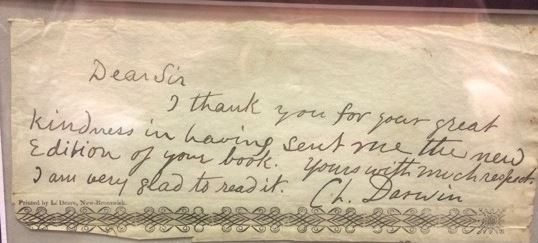 Dear Sir
I thank you for your great
kindness in having sent me the new
Edition of your book. Yours with much respect.
I am very glad to read it. Ch. Darwin
Printed by L. Deare, New-Brunswick.